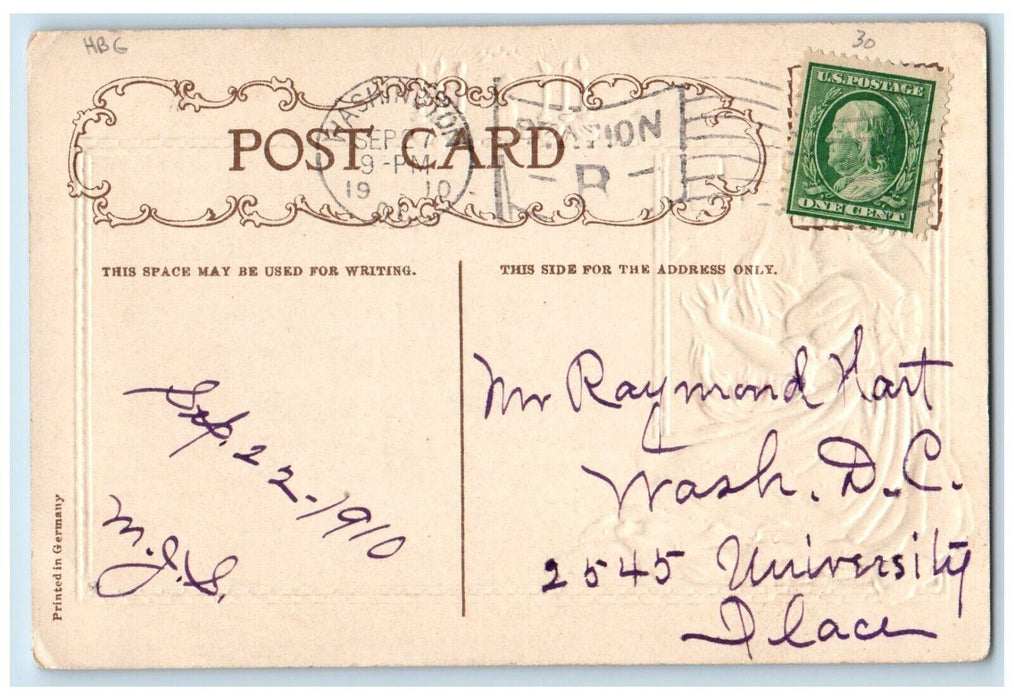 HBG
30
POST CARD
WASHINGTON
SEP 27
9-PM
19 10
STATION
U.S.POSTAGE
ONE CENT
THIS SPACE MAY BE USED FOR WRITING.
THIS SIDE FOR THE ADDRESS ONLY.
Sep. 22-1910
M.J.S.
Mr Raymond Hart
Wash. D.C.
2545 University
Place
Printed in Germany